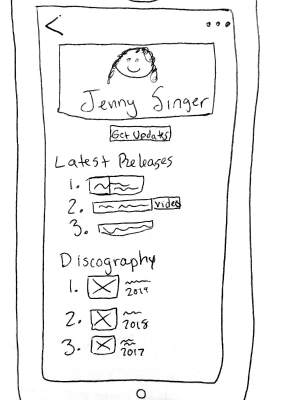 Jenny Singer
Get Updates
Latest Releases
1.
2. video
3.
Discography
1. 2019
2. 2018
3. 2017